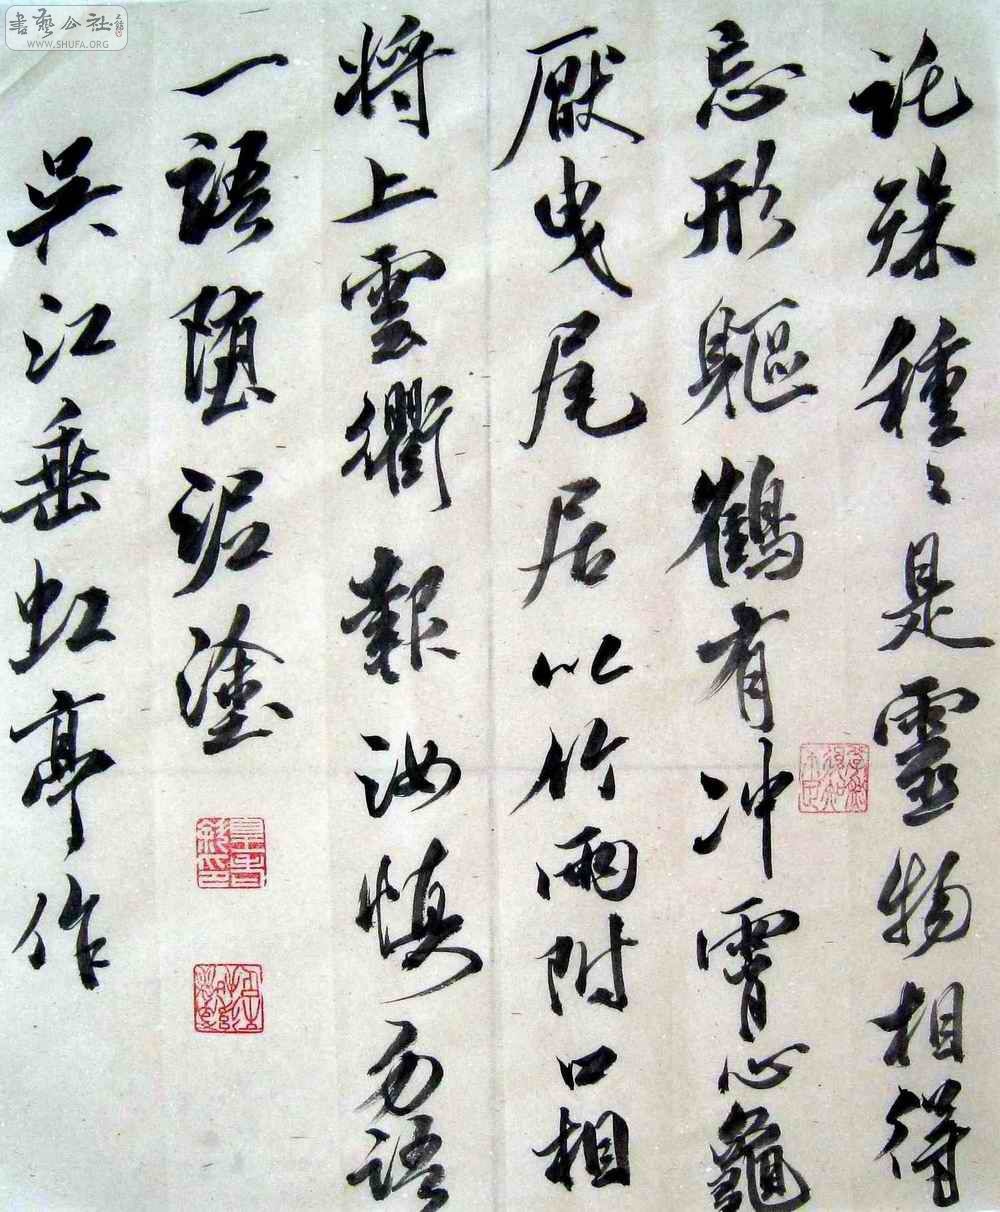 託殊種々是靈物相得
忘形軀鶴有冲霄心龜
厭曳尾居以竹兩附口相
將上雲衢報汝慎勿語
一語墮泥塗
吳江垂虹亭作
書藝公社
WWW.SHUFA.ORG